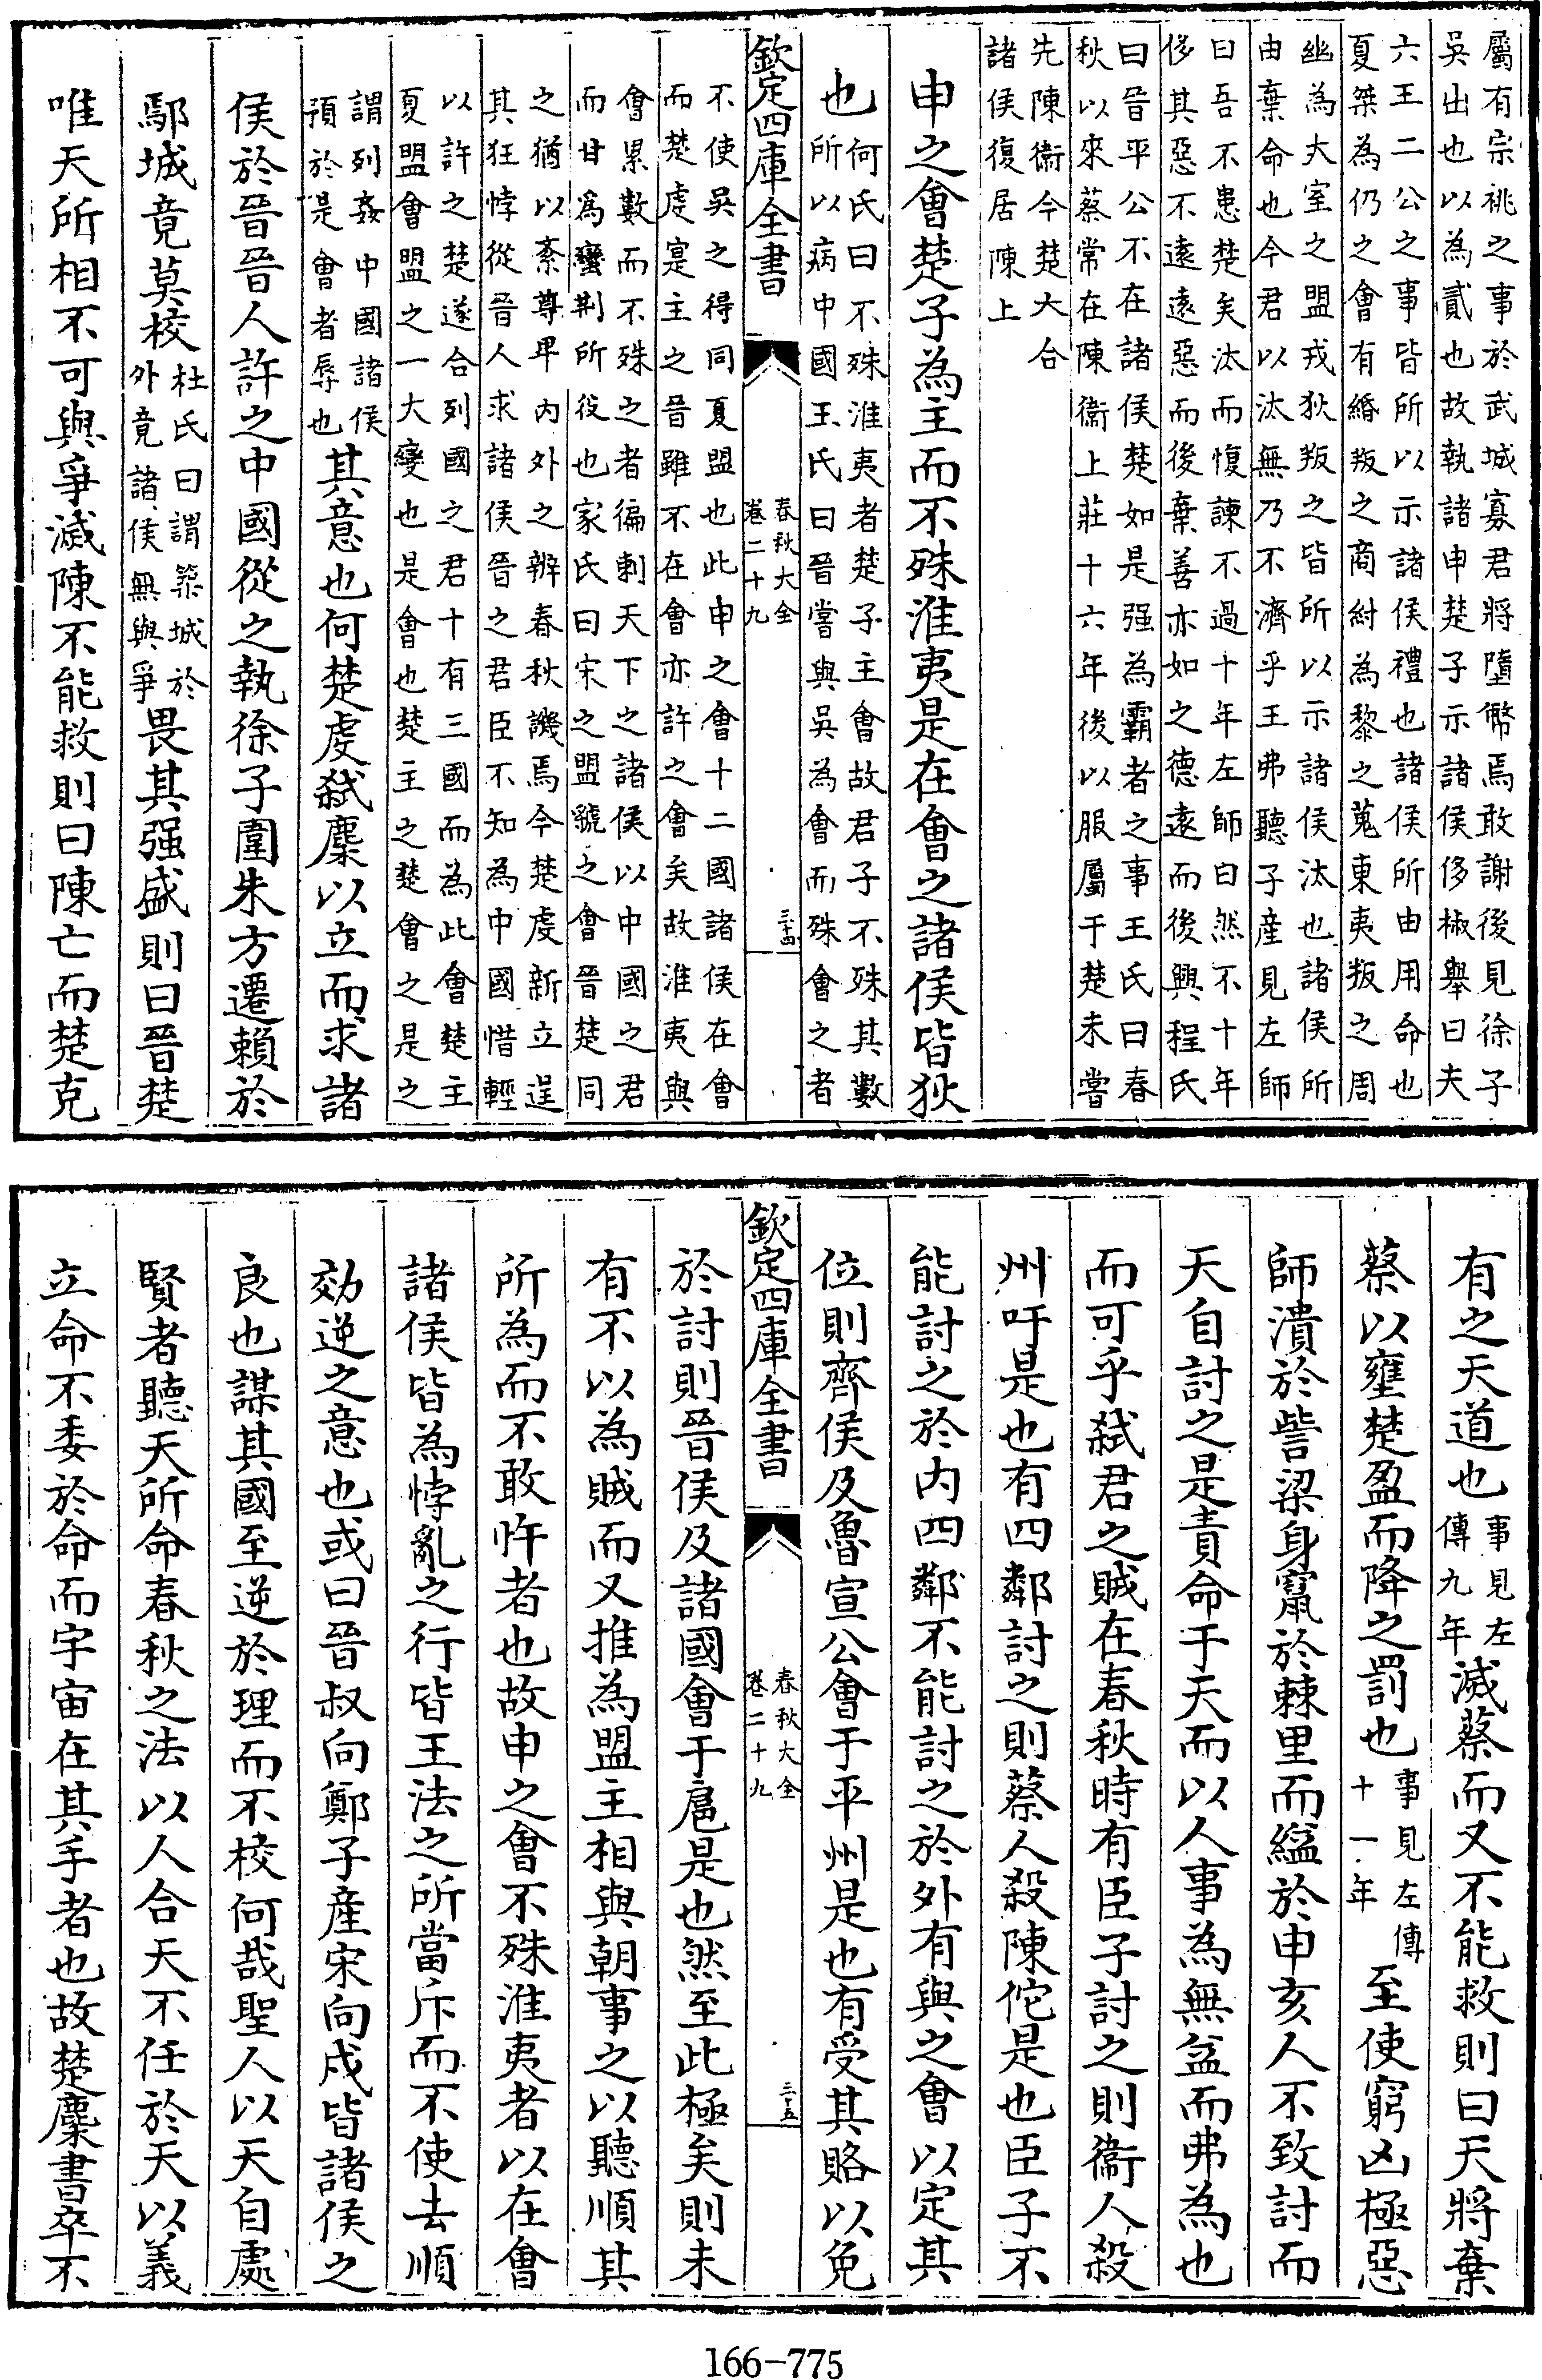 屬有宗祧之事於武城寡君將墮幣焉敢謝後見徐子
吳出也以為貳也故執諸申楚子示諸侯侈椒舉曰夫
六王二公之事皆所以示諸侯禮也諸侯所由用命也
夏桀為仍之會有緡叛之商紂為黎之蒐東夷叛之周
幽為大室之盟戎狄叛之皆所以示諸侯汰也諸侯所
由棄命也今君以汰無乃不濟乎王弗聽子產見左師
曰吾不患楚矣汰而愎諫不過十年左師曰然不十年
侈其惡不遠遠惡而後棄善亦如之德遠而後興程氏
曰晉平公不在諸侯楚如是强為霸者之事王氏曰春
秋以來蔡常在陳衞上莊十六年後以服屬于楚未嘗
先陳衞今楚大合
諸侯復居陳上
申之會楚子為主而不殊淮夷是在會之諸侯皆狄
也
何氏曰不殊淮夷者楚子主會故君子不殊其數
所以病中國王氏曰晉嘗與吳為會而殊會之者
欽定四庫全書
春秋大全
卷二十九
三十四
不使吳之得同夏盟也此申之會十二國諸侯在會
而楚虔寔主之晉雖不在會亦許之會矣故淮夷與
會累數而不殊之者徧刺天下之諸侯以中國之君
而甘爲蠻荆所役也家氏曰宋之盟虢之會晉楚同
之猶以紊尊畢內外之辨春秋譏焉今楚虔新立逞
其狂悖從晉人求諸侯晉之君臣不知為中國惜輕
以許之楚遂合列國之君十有三國而為此會楚主
夏盟會盟之一大變也是會也楚主之楚會之是之
謂列姦中國諸侯
預於是會者辱也
其意也何楚虔弑麇以立而求諸
侯於晉晉人許之中國從之執徐子圍朱方遷賴於
鄢城竟莫校
杜氏曰謂築城於
外竟諸侯無與爭
畏其强盛則曰晉楚
唯天所相不可與爭滅陳不能救則曰陳亡而楚克
有之天道也
事見左
傳九年
滅蔡而又不能救則曰天將棄
蔡以壅楚盈而降之罰也
事見左傳
十一年
至使窮凶極惡
師潰於訾梁身竄於棘里而縊於申亥人不致討而
天自討之是責命于天而以人事為無益而弗為也
而可乎弑君之賊在春秋時有臣子討之則衞人殺
州吁是也有四鄰討之則蔡人殺陳佗是也臣子不
能討之於内四鄰不能討之於外有與之會以定其
位則齊侯及魯宣公會于平州是也有受其賂以免
欽定四庫全書
春秋大全
卷二十九
三十五
於討則晉侯及諸國會于扈是也然至此極矣則未
有不以為賊而又推為盟主相與朝事之以聽順其
所為而不敢忤者也故申之會不殊淮夷者以在會
諸侯皆為悖亂之行皆王法之所當斥而不使去順
効逆之意也或曰晉叔向鄭子產宋向戌皆諸侯之
良也謀其國至逆於理而不校何哉聖人以天自處
賢者聽天所命春秋之法以人合天不任於天以義
立命不委於命而宇宙在其手者也故楚麇書卒不
166-775